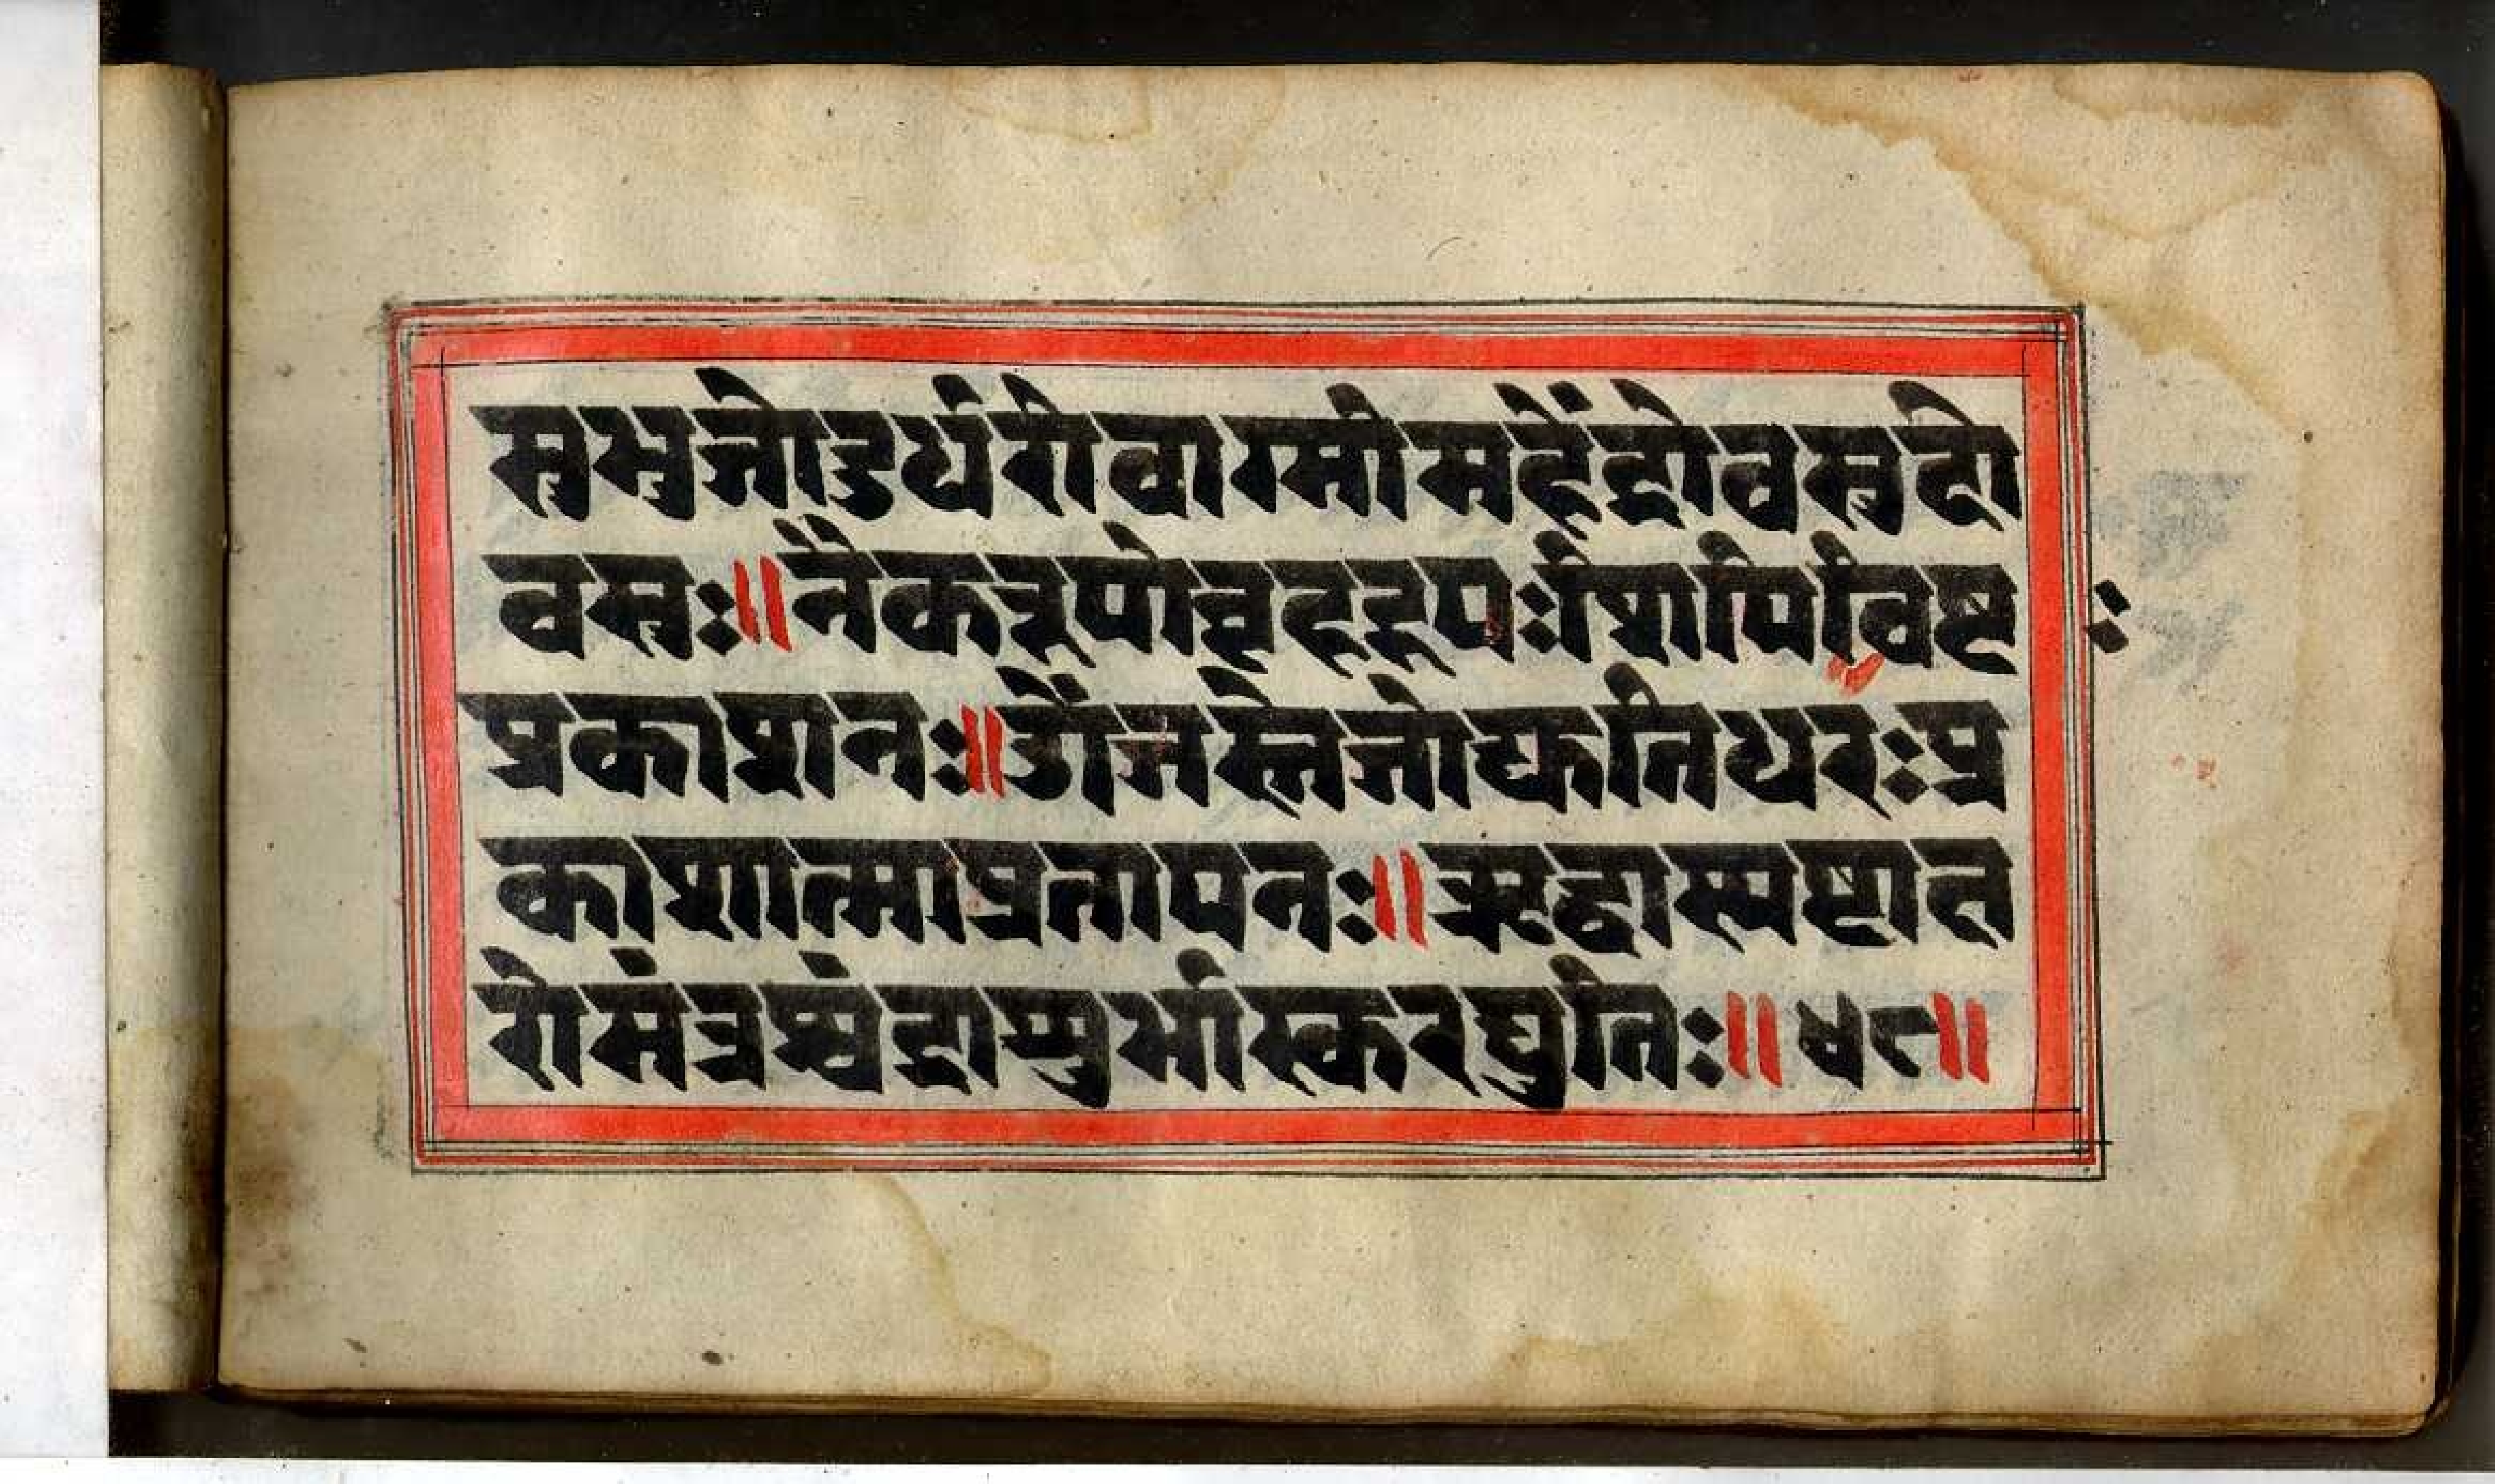 सुभुजोदुर्धरोवाग्मीमहेंद्रोवसुदो
वसुः॥नैकरूपोवृहद्रूपःशिपिविष्टः
प्रकाशनः॥ओंजस्तेजोद्युतिधरःप्र
काशात्माप्रतापनः॥ऋद्धास्पष्टात
रोमंत्रश्चंद्राशुर्भास्करद्युतिः॥५८॥